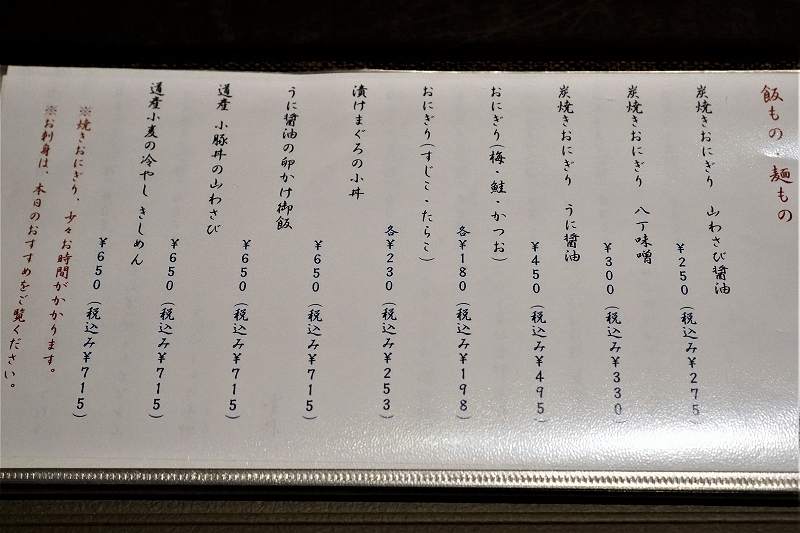 飯もの・麺もの
炭焼きおにぎり 山わさび醤油
¥250(税込み¥275)
炭焼きおにぎり 八丁味噌
¥300(税込み¥330)
炭焼きおにぎり うに醤油
¥450(税込み¥495)
おにぎり(梅・鮭・かつお)
各¥180(税込み¥198)
おにぎり(すじこ・たらこ)
各¥230(税込み¥253)
漬けまぐろの小丼
¥650(税込み¥715)
うに醤油の卵かけ御飯
¥650(税込み¥715)
道産 小豚丼の山わさび
¥650(税込み¥715)
道産小麦の冷やしきしめん
¥650(税込み¥715)
※焼きおにぎり、少々お時間がかかります。
※お刺身は、本日のおすすめをご覧ください。